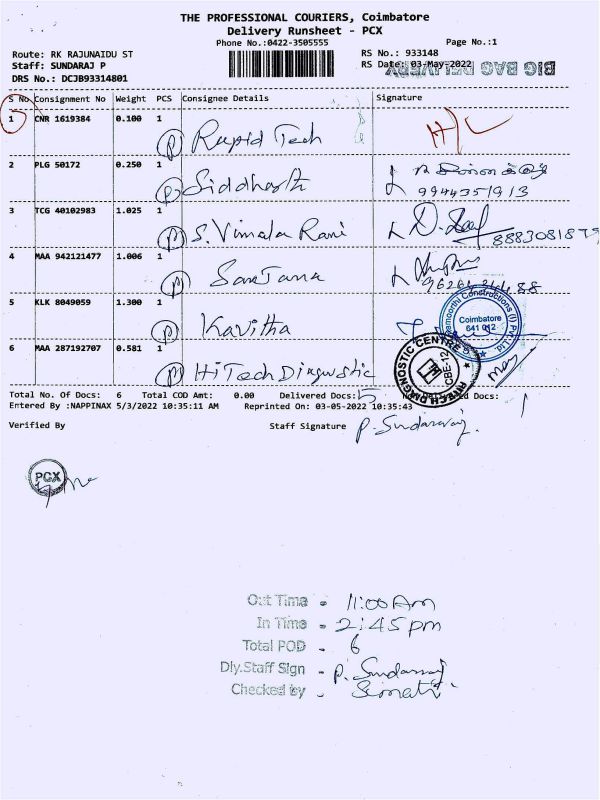 THE PROFESSIONAL COURIERS, Coimbatore
Delivery Runsheet - PCX
Phone No.:0422-3505555
Page No.:1
Route: RK RAJUNAIDU ST
RS No.: 933148
Staff: SUNDARAJ P
RS Date: 03-May-2022
BIG BAG DELIVERY
DRS No.: DCJB93314801
S No Consignment No Weight PCS Consignee Details Signature
1 CNR 1619384 0.100 1 (P) Rapid Tech H/L
2 PLG 50172 0.250 1 (P) Siddharth
9944351913
3 TCG 40102983 1.025 1 (P) S. Vimala Rani
8883081879
4 MAA 942121477 1.006 1 (P) Santana
5 KLK 8049059 1.300 1 (P) Kavitha
Coimbatore
641 012
6 MAA 287192707 0.581 1 (P) HiTech Diagnostic
Total No. Of Docs: 6 Total COD Amt: 0.00 Delivered Docs: 5 Docs: 1
Entered By :NAPPINAX 5/3/2022 10:35:11 AM Reprinted On: 03-05-2022 10:35:43
Verified By Staff Signature P. Sundararaj.
PCX
Out Time - 11:00 Am
In Time - 2:45 pm
Total POD - 6
Dly.Staff Sign - P. Sundarraj
Checked by -